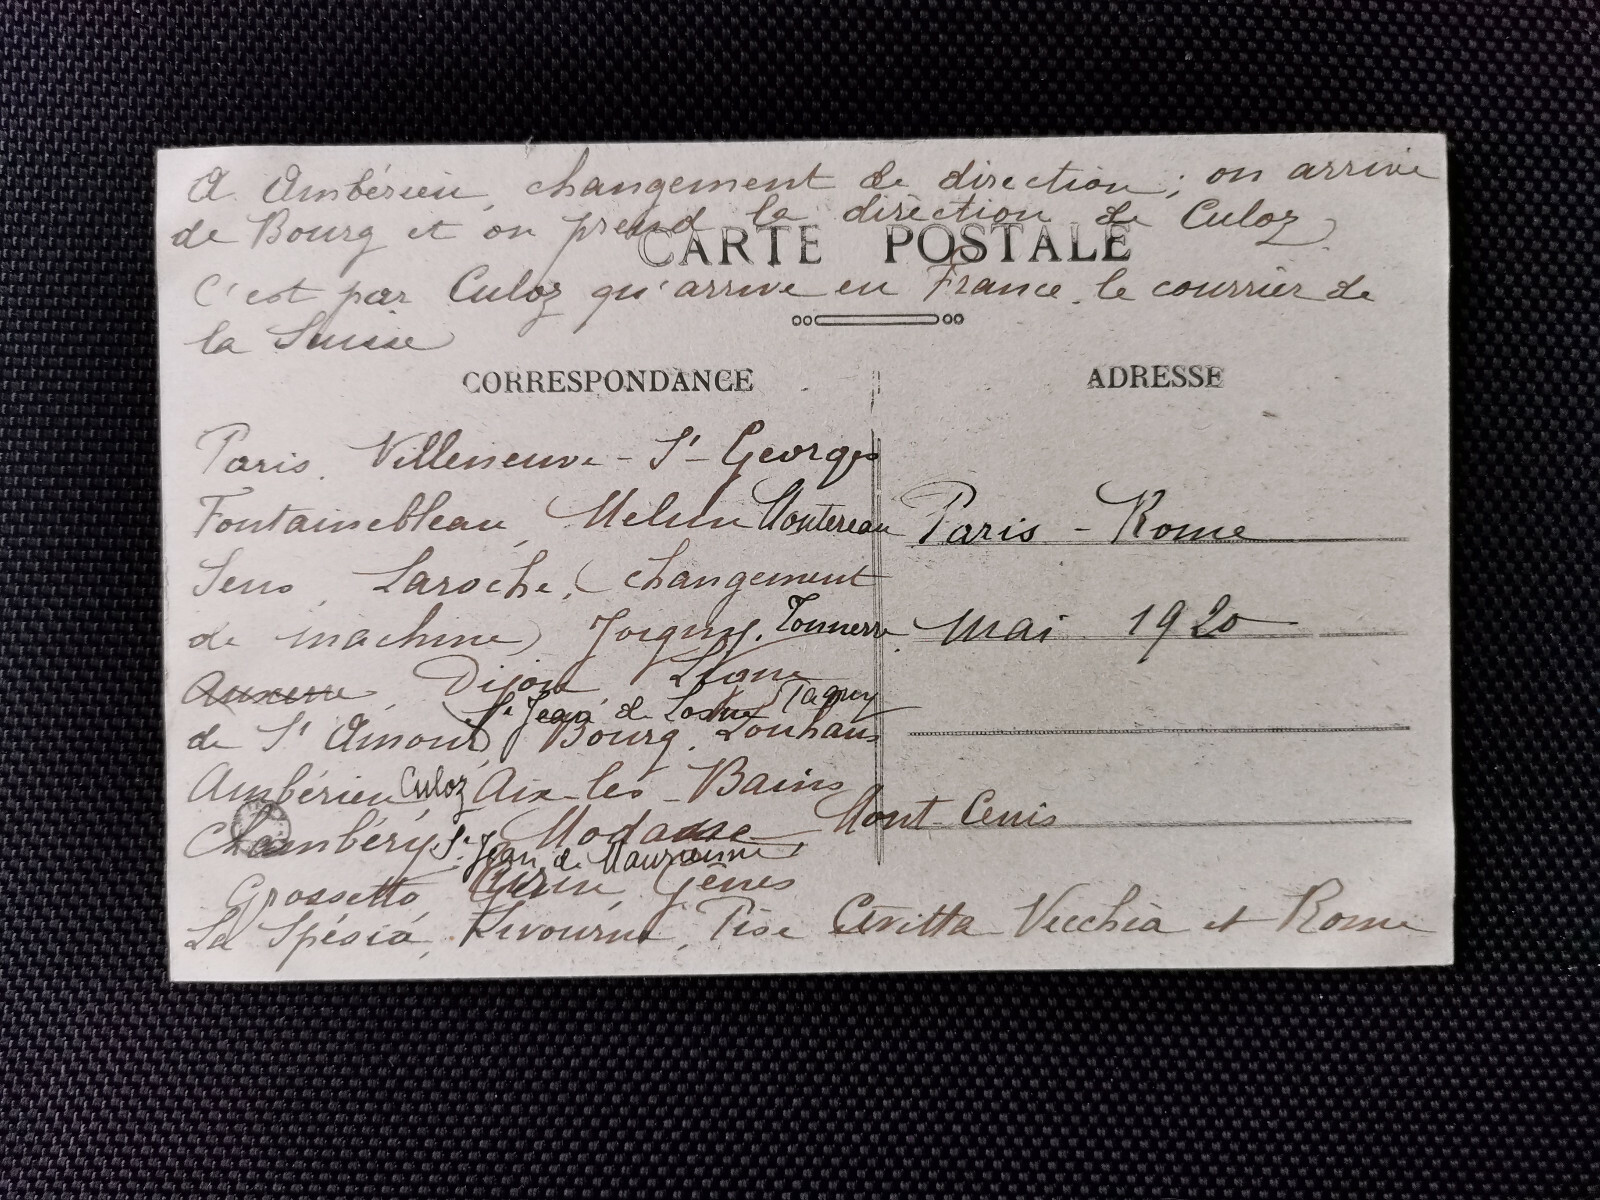 A Ambérieu, changement de direction ; on arrive
de Bourg et on prend la direction de Culoz
CARTE POSTALE
C'est par Culoz qu'arrive en France le courrier de
la Suisse
CORRESPONDANCE
ADRESSE
Paris, Villeneuve - St - Georges
Fontainebleau, Melun Montereau
Sens, Laroche, (changement
de machine) Joigny, Tonnerre
Auxerre, Dijon Ligne
St Jean de Losne
de St Amour) Bourg, Louhans
Ambérieu Culoz Aix-les-Bains
Chambéry, Modane, Mont Cenis
St Jean de Maurienne
Grossetto Turin, Gênes
La Spésia, Livourne, Pise Civitta Vecchia et Rome
Paris - Rome
Mai 1920